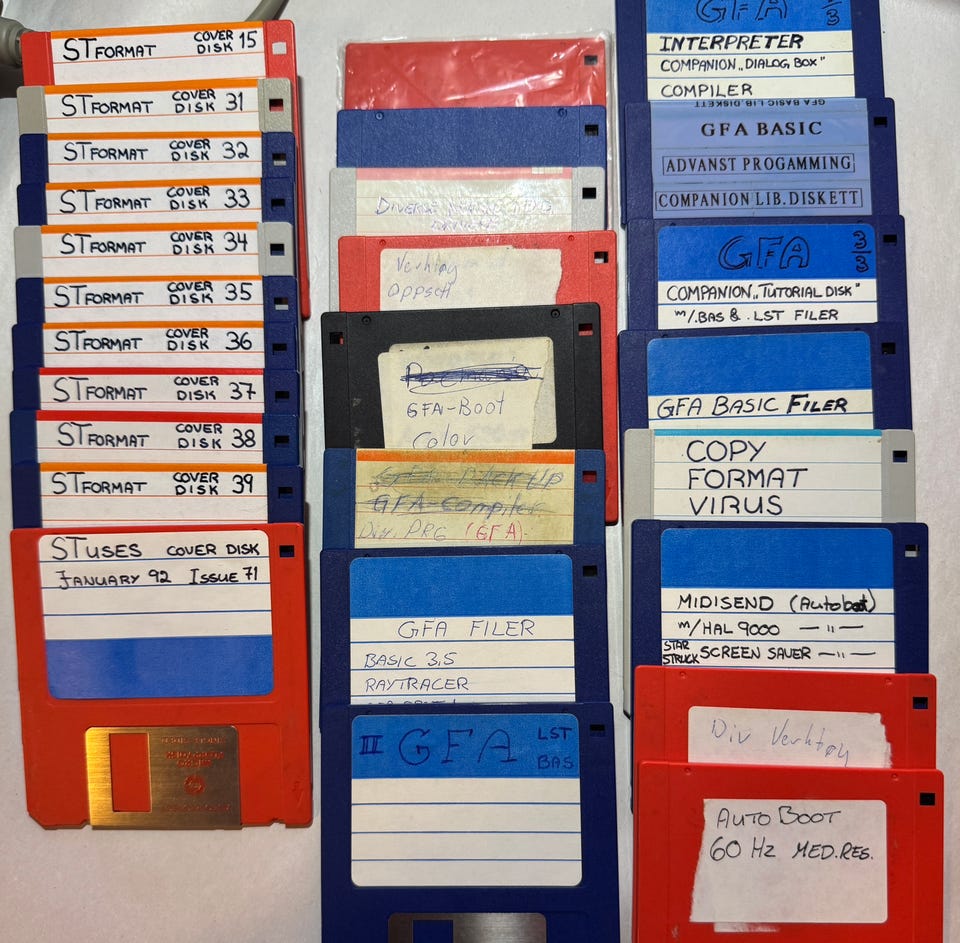 STFORMAT COVER DISK 15
STFORMAT COVER DISK 31
STFORMAT COVER DISK 32
STFORMAT COVER DISK 33
STFORMAT COVER DISK 34
STFORMAT COVER DISK 35
STFORMAT COVER DISK 36
STFORMAT COVER DISK 37
STFORMAT COVER DISK 38
STFORMAT COVER DISK 39
STUSES COVER DISK
JANUARY 92 ISSUE 71
DIVERSE
Verktøy
Oppsett
GFA-Boot
Color
GFA BACK UP
GFA-compiler
Div. PRG (GFA)
GFA FILER
BASIC 3,5
RAYTRACER
III GFA LST
BAS
GFA 3/3
INTERPRETER
COMPANION „DIALOG BOX"
COMPILER
GFA BASIC LIB. DISKETT
GFA BASIC
ADVANST PROGAMMING
COMPANION LIB. DISKETT
GFA 3/3
COMPANION „TUTORIAL DISK"
m/.BAS & .LST FILER
GFA BASIC FILER
COPY
FORMAT
VIRUS
MIDISEND (Autoboot)
m/HAL 9000 — " —
STAR STRUCK SCREEN SAVER — " —
Div Verktøy
AUTO BOOT
60 HZ MED.RES.